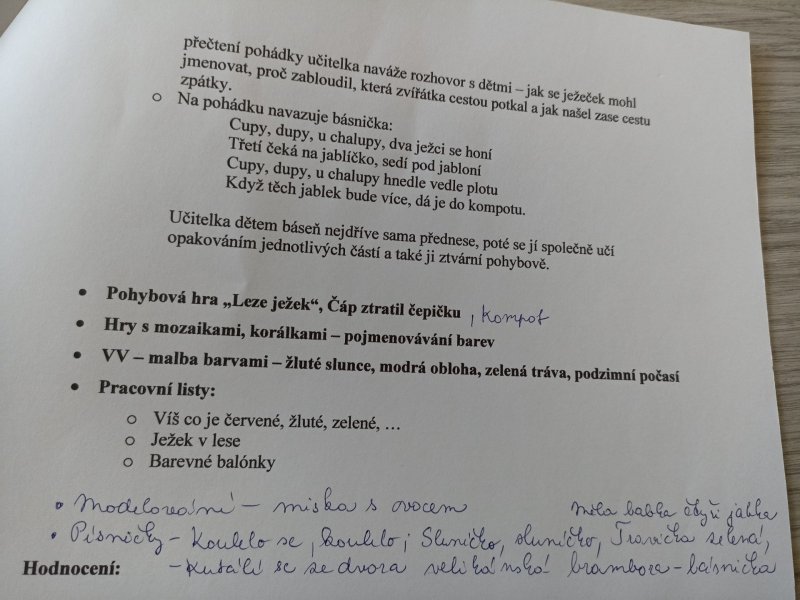 přečtení pohádky učitelka naváže rozhovor s dětmi – jak se ježeček mohl
jmenovat, proč zabloudil, která zvířátka cestou potkal a jak našel zase cestu
zpátky.
o Na pohádku navazuje básnička:
Cupy, dupy, u chalupy, dva ježci se honí
Třetí čeká na jablíčko, sedí pod jabloní
Cupy, dupy, u chalupy hnedle vedle plotu
Když těch jablek bude více, dá je do kompotu.
Učitelka dětem báseň nejdříve sama přednese, poté se jí společně učí
opakováním jednotlivých částí a také ji ztvární pohybově.
• Pohybová hra „Leze ježek“, Čáp ztratil čepičku , Kompot
• Hry s mozaikami, korálkami – pojmenovávání barev
• VV – malba barvami – žluté slunce, modrá obloha, zelená tráva, podzimní počasí
• Pracovní listy:
o Víš co je červené, žluté, zelené, …
o Ježek v lese
o Barevné balónky
• Modelování – miska s ovocem
měla babka čtyři jabka
• Písničky – Koulelo se, koulelo; Sluníčko, sluníčko, Travička zelená,
Hodnocení: – Kutálí se ze dvora velikánská brambora – básnička